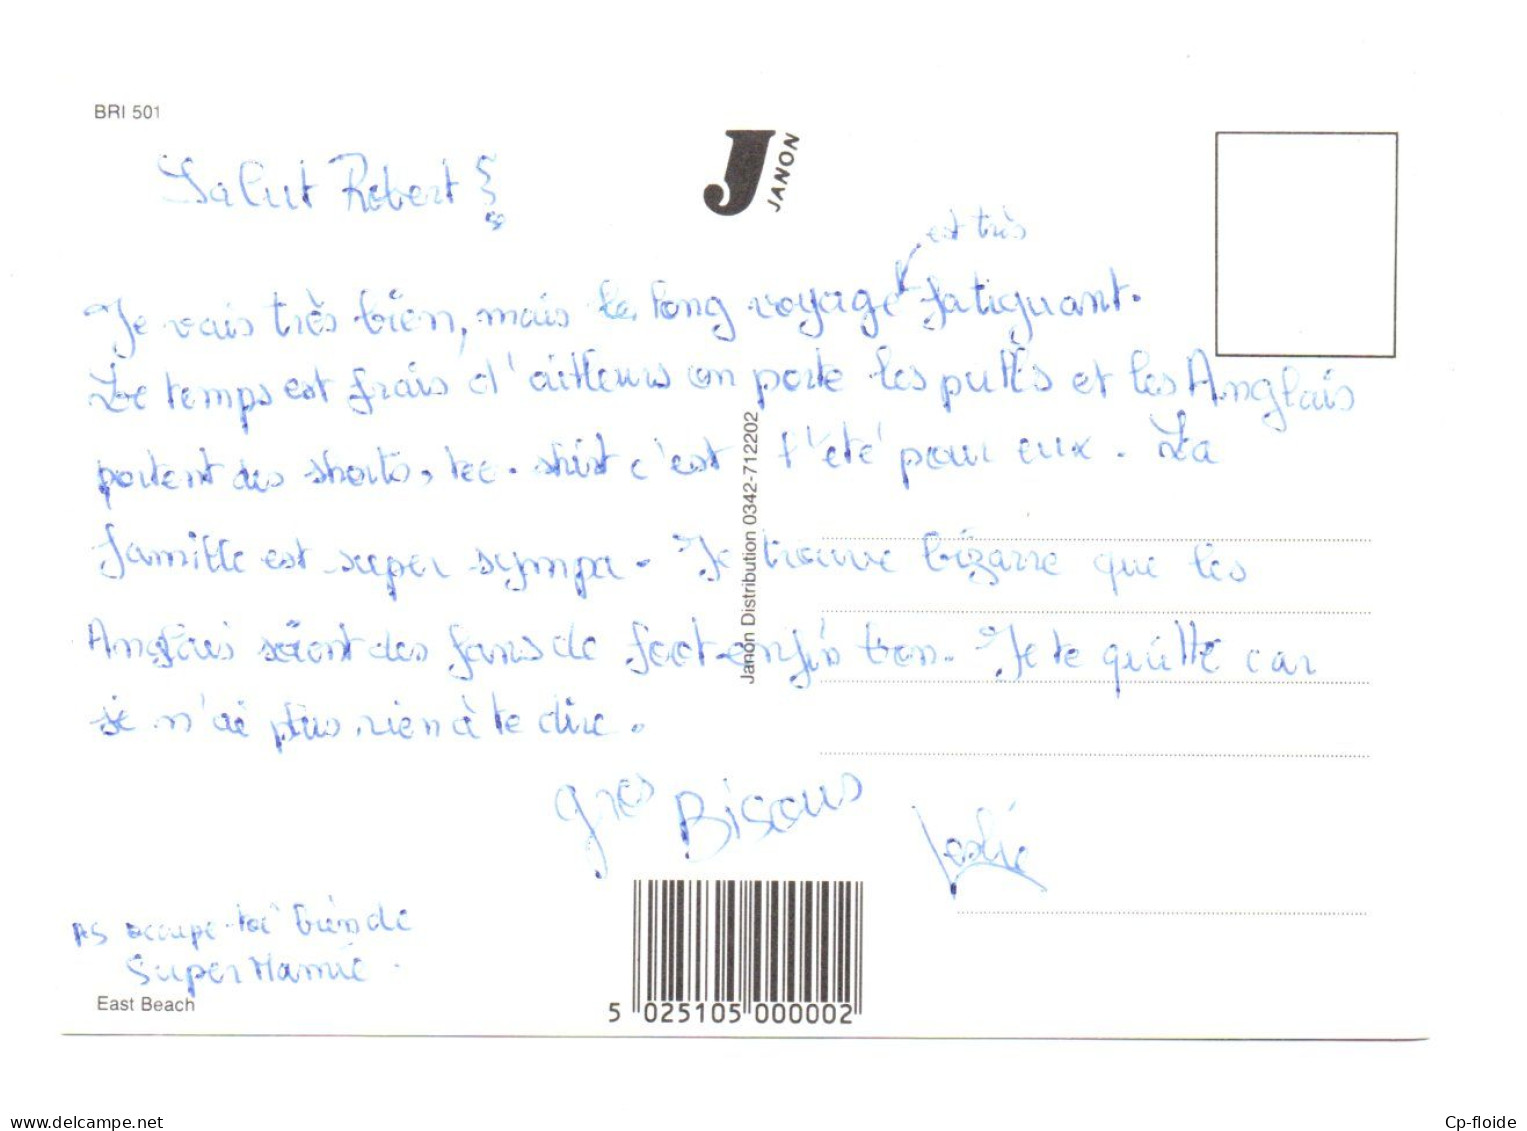 BRI 501
J JANON
Salut Robert !
est très
Je vais très bien, mais le long voyage fatiguant.
Le temps est frais d'ailleurs on porte les pulls et les Anglais
portent des shorts, tee-shirt c'est l'été pour eux. La
famille est super sympa. Je trouve bizarre que les
Anglais soient des fans de foot enfin bon. Je te quitte car
je n'ai plus rien à te dire.
gros Bisous
Leslie
PS occupe-toi bien de
Super Mamie.
East Beach
Janon Distribution 0342-712202
5 025105 000002
www.delcampe.net
Cp-floide